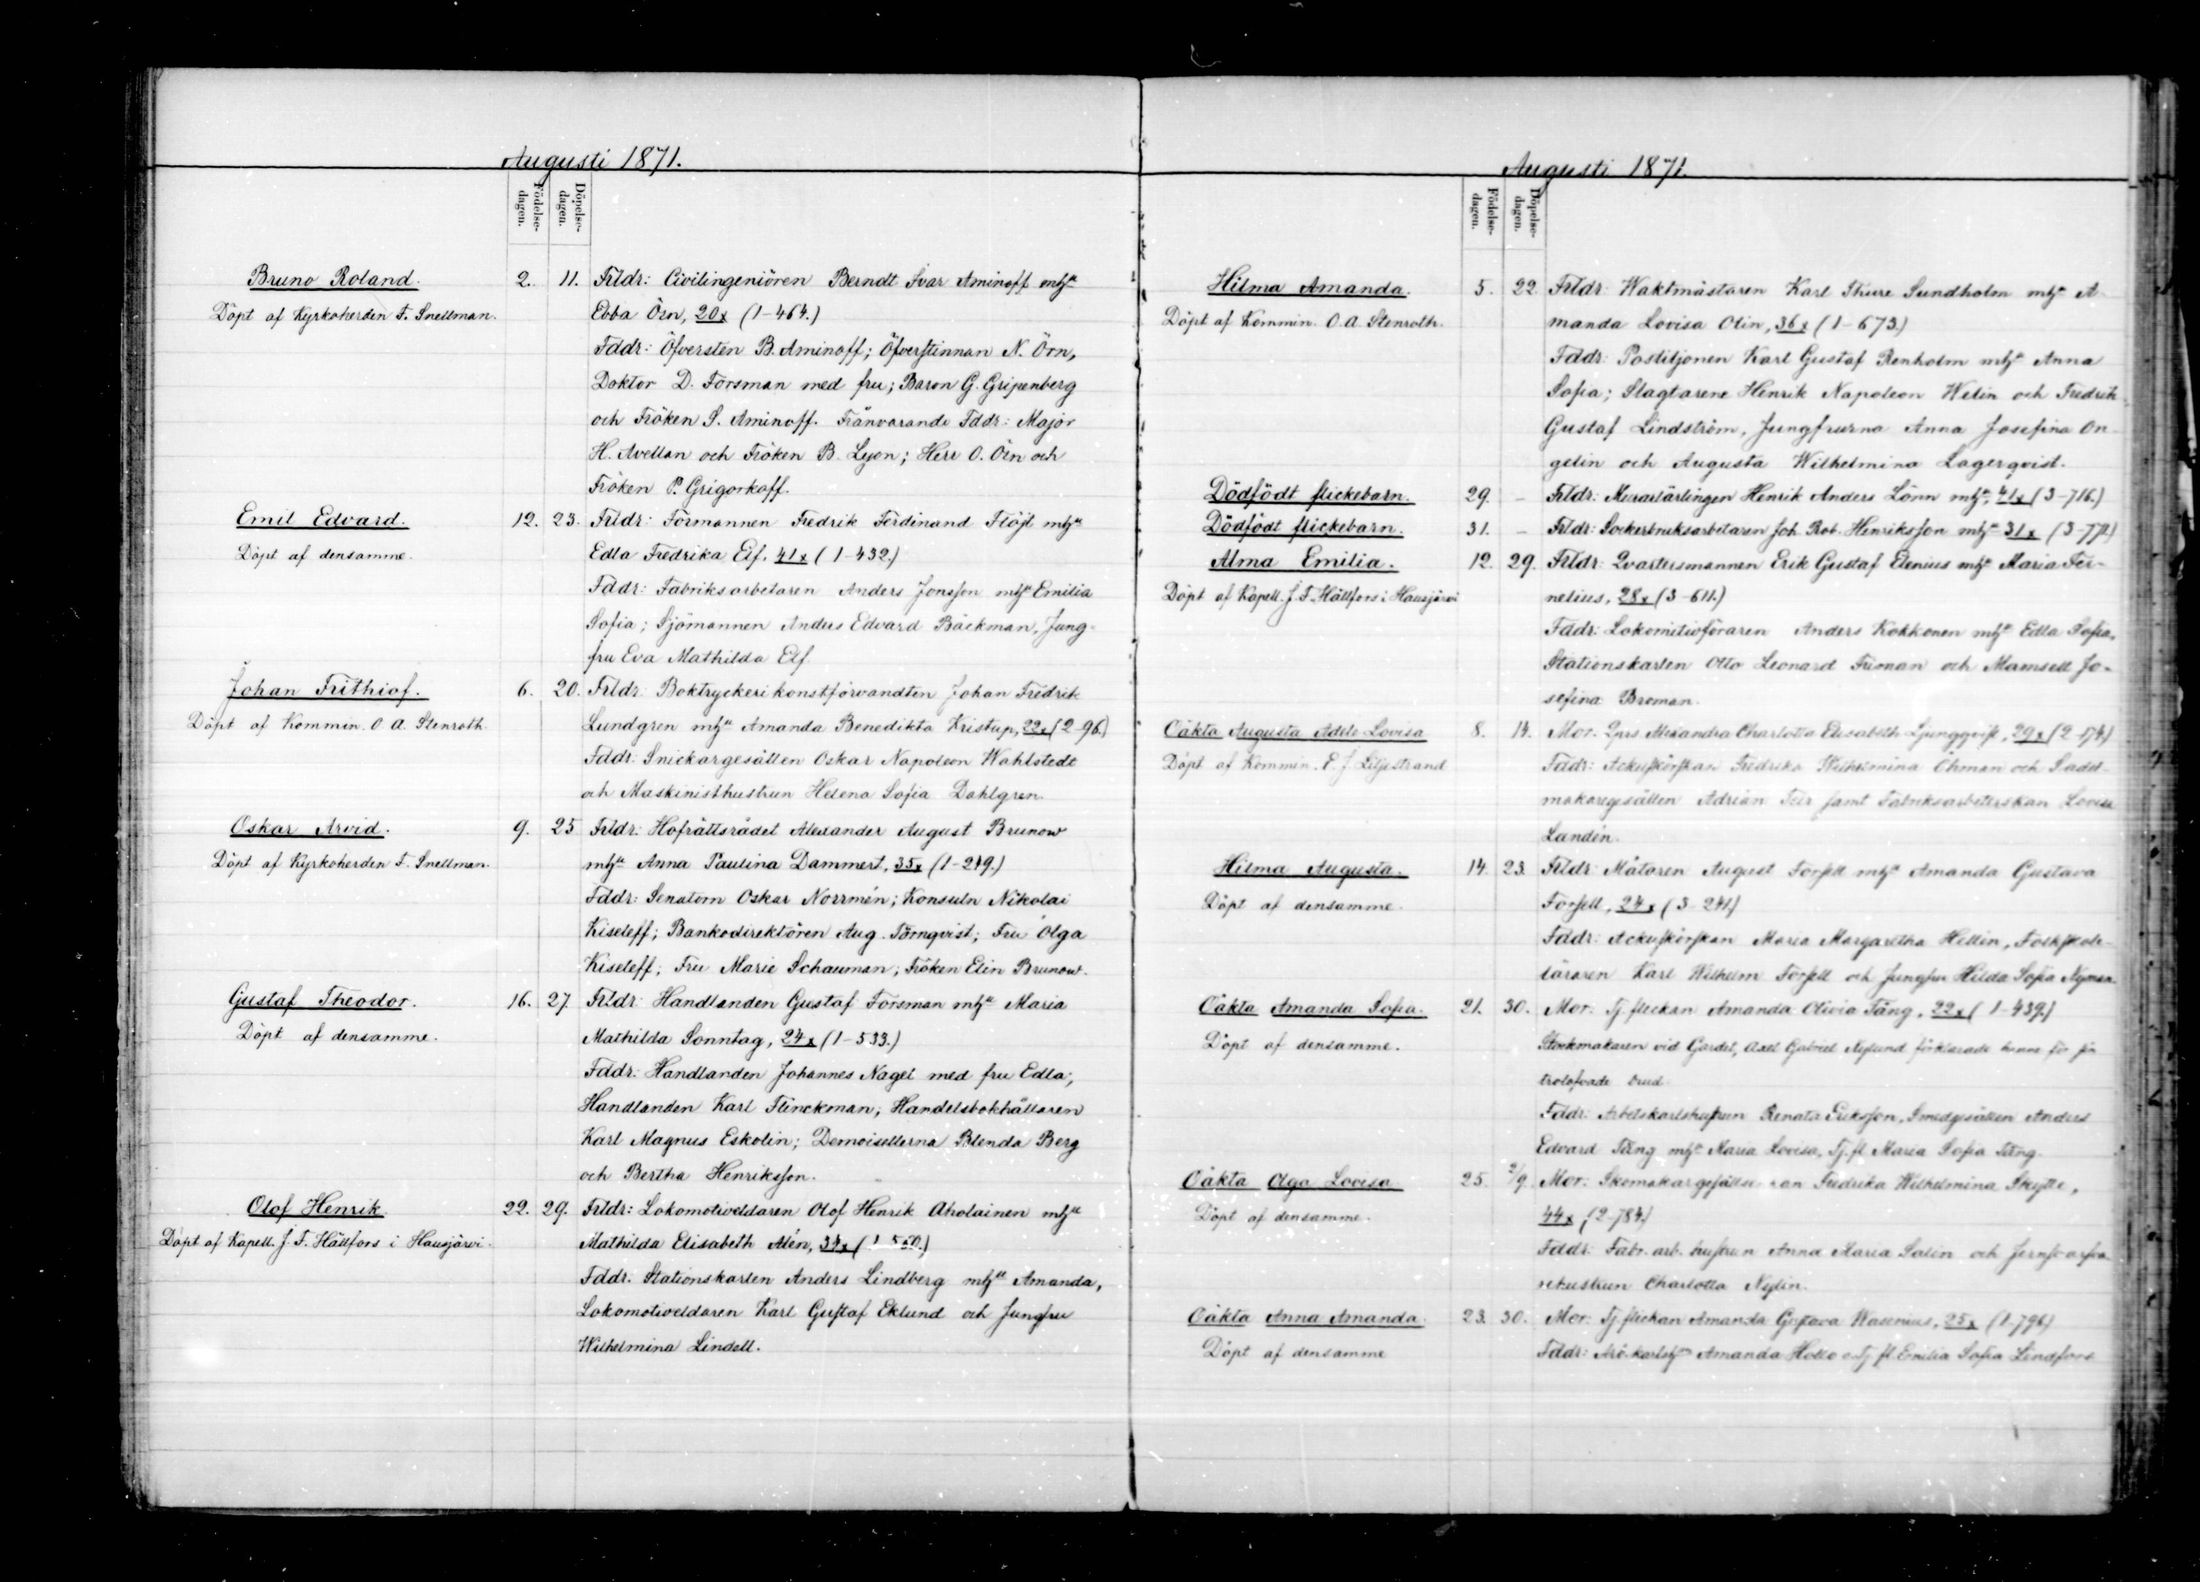 Augusti 1871.
Födelse-dagen. Döpelse-dagen.
Bruno Roland. 2. 11. Frldr: Civilingeniören Berndt Ivar Aminoff mhu
Döpt af Kyrkoherden F. Snellman. Ebba Örn, 20x (1-464.)
Fddr: Öfversten B. Aminoff; Öfverstinnan N. Örn,
Doktor D. Forsman med fru; Baron G. Gripenberg
och Fröken S. Aminoff. Frånvarande Fddr: Major
H. Avellan och Fröken B. Lyon; Herr O. Örn och
Fröken P. Grigorkoff.
Emil Edvard. 12. 23. Frldr: Förmannen Fredrik Ferdinand Flöjt mhu
Döpt af densamme. Edla Fredrika Elf. 41x (1-432.)
Fddr: Fabriksarbetaren Anders Jonsson mhu Emilia
Sofia; Sjömannen Anders Edvard Bäckman, Jung-
fru Eva Mathilda Elf.
Johan Frithiof. 6. 20. Frldr: Boktryckerikonstförvandten Johan Fredrik
Döpt af Kommin. O. A. Stenroth. Lundgren mhu Amanda Benedikta Kristup, 22x (2-96.)
Fddr: Snickargesällen Oskar Napoleon Wahlstedt
och Maskinisthustrun Helena Sofia Dahlgren.
Oskar Arvid. 9. 25 Frldr: Hofrättsrådet Alexander August Brunow
Döpt af Kyrkoherden F. Snellman. mhu Anna Paulina Dammert, 35x (1-249.)
Fddr: Senatorn Oskar Norrmén; Konsuln Nikolai
Kiseleff; Bankodirektören Aug. Törnqvist; Fru Olga
Kiseleff; Fru Marie Schauman; Fröken Elin Brunow.
Gustaf Theodor. 16. 27. Frldr: Handlanden Gustaf Forsman mhu Maria
Döpt af densamme. Mathilda Sonntag, 24x (1-533.)
Fddr: Handlanden Johannes Nagel med fru Edla;
Handlanden Karl Flinckman; Handelsbokhållaren
Karl Magnus Eskolin; Demoisellerna Blenda Berg
och Bertha Henriksson.
Olof Henrik 22. 29. Frldr: Lokomotiveldaren Olof Henrik Aholainen mhu
Döpt af Kapell. J. F. Hällfors i Hausjärvi. Mathilda Elisabeth Alén, 34x (1 550.)
Fddr: Stationskarlen Anders Lindberg mhu Amanda,
Lokomotiveldaren Karl Gustaf Eklund och Jungfru
Wilhelmina Lindell.
Augusti 1871.
Födelse-dagen. Döpelse-dagen.
Hilma Amanda. 5. 22. Frldr: Waktmästaren Karl Thure Sundholm mhu A-
Döpt af Kommin. O. A. Stenroth. manda Lovisa Olin, 36x (1-673.)
Fddr: Postiljonen Karl Gustaf Renholm mhu Anna
Sofia; Slagtarene Henrik Napoleon Welin och Fredrik
Gustaf Lindström, Jungfrurna Anna Josefina On-
gelin och Augusta Wilhelmina Lagerqvist.
Dödfödt flickebarn. 29. - Frldr: Murarlärlingen Henrik Anders Lönn mhu, 41x (3-716.)
Dödfödt flickebarn. 31. - Frldr: Sockerbruksarbetaren Joh. Rob. Henriksson mhu 31x
Alma Emilia. 12. 29. Frldr: Qvartersmannen Erik Gustaf Elenius mhu Maria Fer-
Döpt af Kapell. J. F. Hällfors i Hausjärvi nelius, 28x (3-611.)
Fddr: Lokomitivföraren Anders Kokkonen mhu Edla Sofia,
Stationskarlen Otto Leonard Friman och Mamsell Jo-
sefina Broman.
Oäkta Augusta Adele Lovisa 8. 14. Mor: Alexandra Charlotta Elisabeth Ljungqvist, 29x (2-174)
Döpt af Kommin. E. J. Liljestrand Fddr: Ackuskörskan Fredrika Wilhelmina Öhman och Sadel-
makaregesällen Adrian samt Fabriksarbeterskan Lovisa
Landén.
Hilma Augusta. 14. 23. Frldr: Mätaren August Forsell mhu Amanda Gustava
Döpt af densamme. Forsell, 24x (3-241)
Fddr: Ackuskörskan Maria Margaretha Hellin, Folkskole-
läraren Karl Wilhelm Forsell och Jungfru Hilda Sofia Nyman
Oäkta Amanda Sofia. 21. 30. Mor: Tj. flickan Amanda Olivia Täng, 22x (1-439.)
Döpt af densamme. Stockmakaren vid Gardet, Axel Gabriel Nylund förklarade henne för sin
trolofvade brud.
Fddr: Arbetskarlshustrun Renata Eriksson, Smedgesällen Anders
Edvard Täng mhu Maria Lovisa, Tj. fl. Maria Sofia Täng.
Oäkta Olga Lovisa 25. 2/9. Mor: Fredrika Wilhelmina Skytte,
Döpt af densamme. 44x (2-784.)
Fddr: Fabr. arb. hustrun Anna Maria Salin och
rehustrun Charlotta Nylin.
Oäkta Anna Amanda. 23. 30. Mor: Tj. flickan Amanda Gustava Wasenius, 25x (1-796)
Döpt af densamme Fddr: Amanda Hollo o. Tj. fl. Emilia Sofia Lindfors